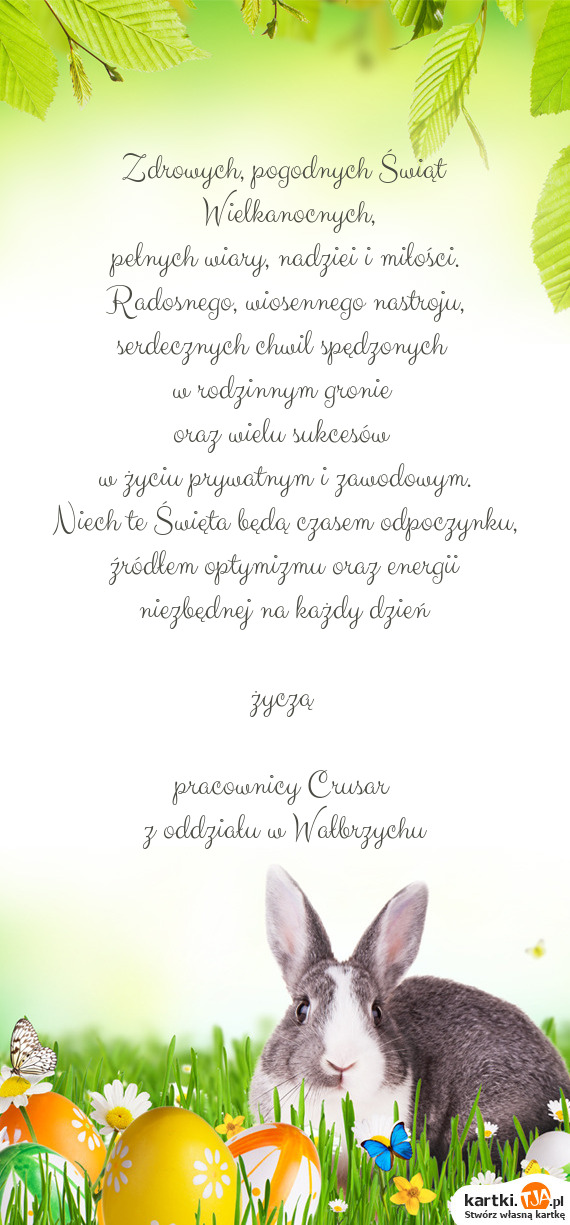 Zdrowych, pogodnych Świąt
Wielkanocnych,
pełnych wiary, nadziei i miłości.
Radosnego, wiosennego nastroju,
serdecznych chwil spędzonych
w rodzinnym gronie
oraz wielu sukcesów
w życiu prywatnym i zawodowym.
Niech te Święta będą czasem odpoczynku,
źródłem optymizmu oraz energii
niezbędnej na każdy dzień
życzą
pracownicy Crusar
z oddziału w Wałbrzychu
kartki.TJA.pl
Stwórz własną kartkę